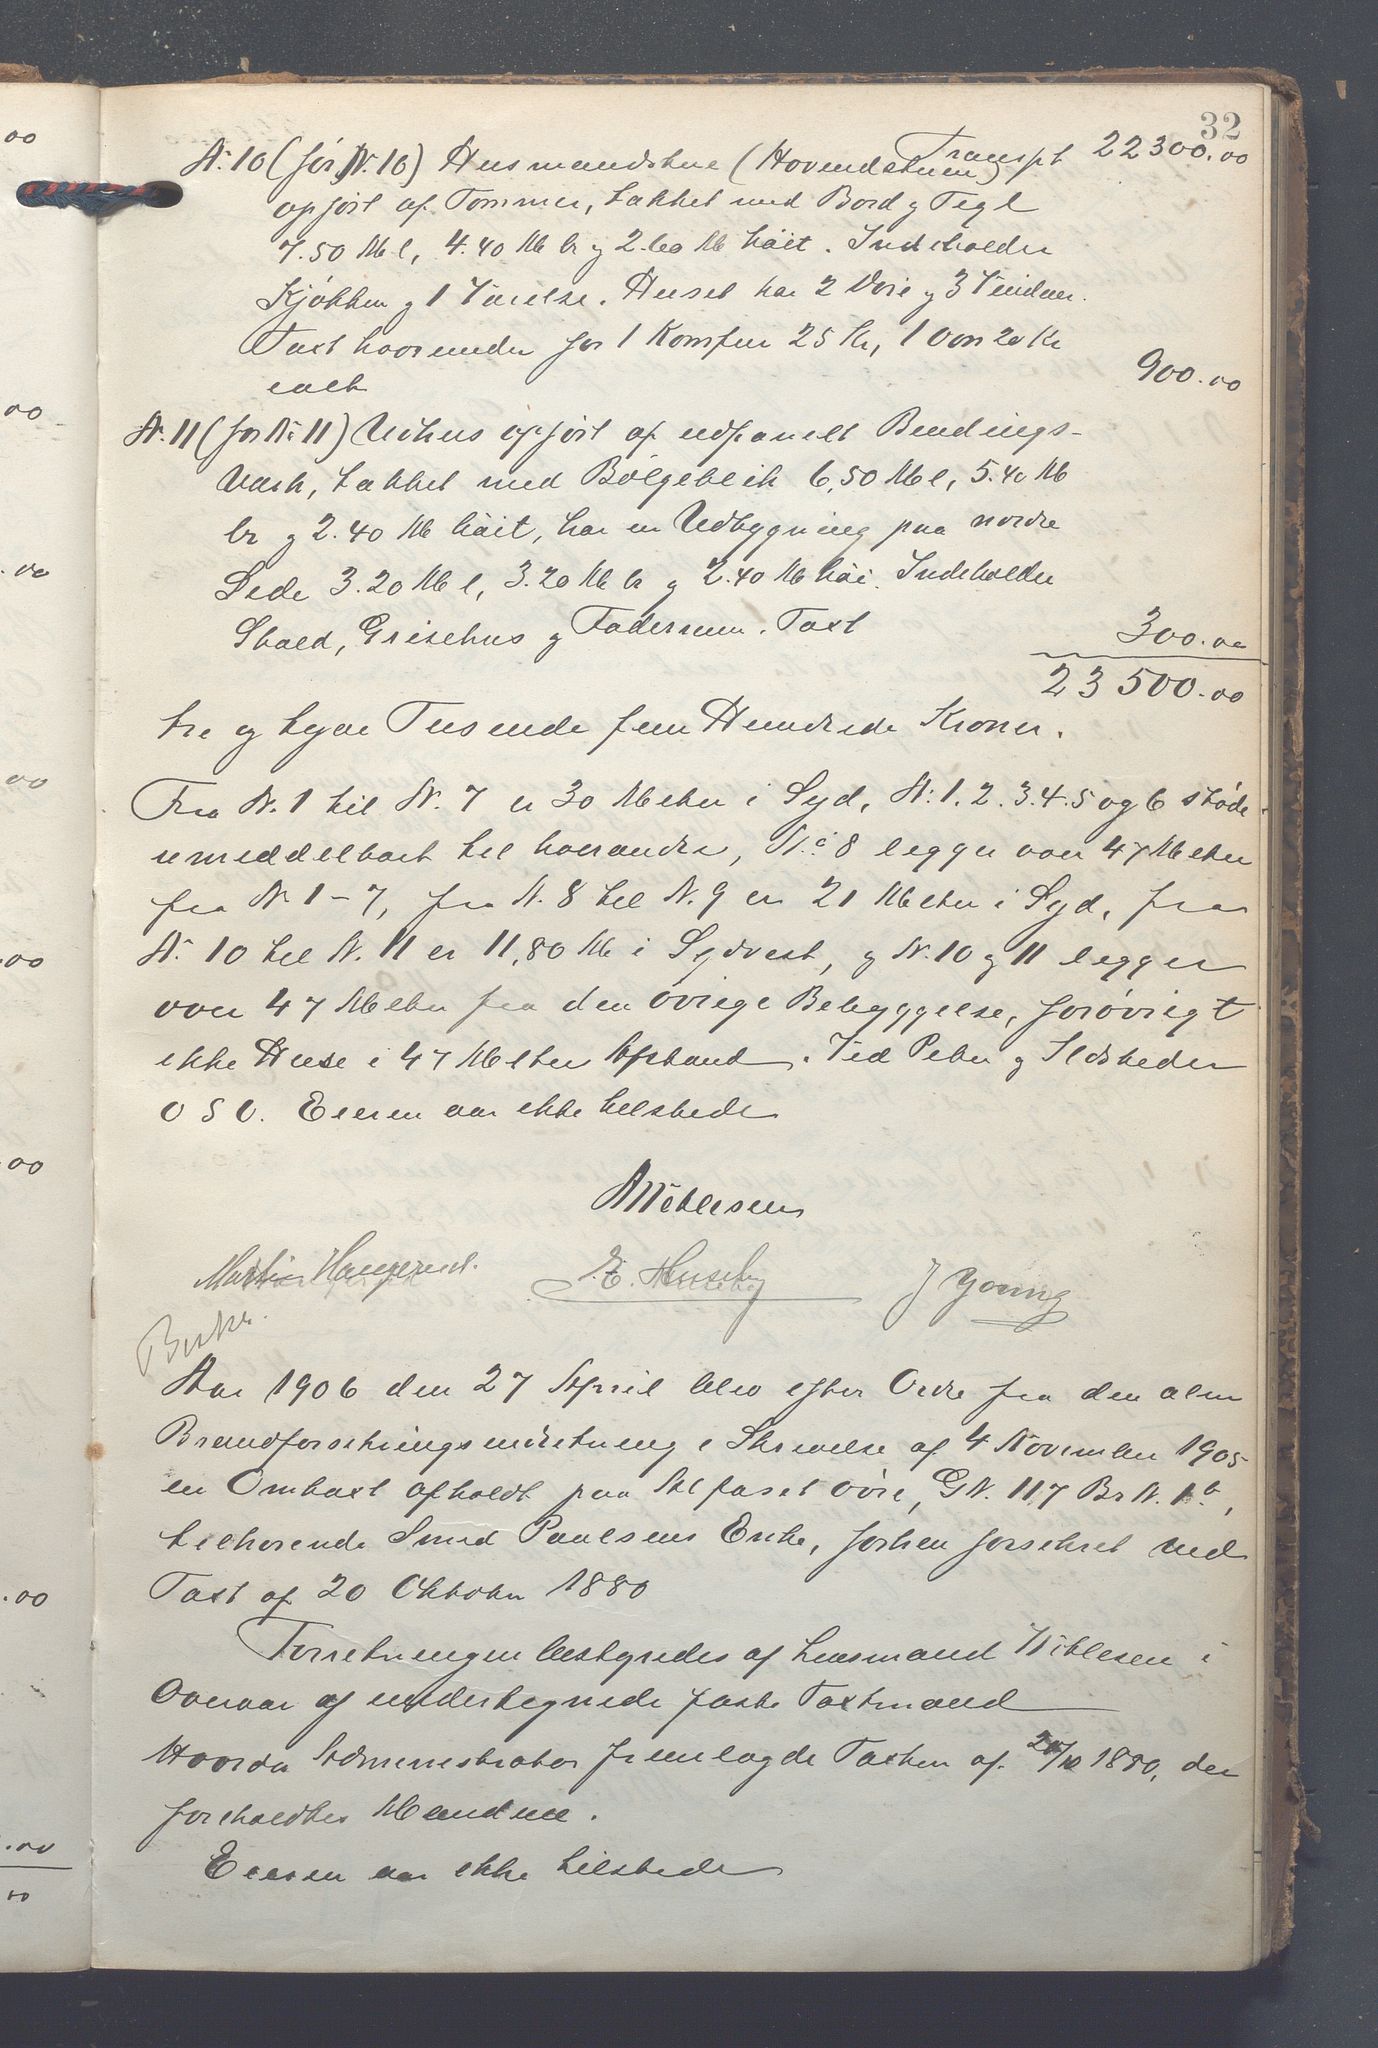 32
Transpt 22300.00
N. 10 (før N. 10) Husmandstue (Hovendstuen)
opført af Tømmer, tækket med Bord og Tegl
7.50 M l, 4.40 M br og 2.60 M høit. Indeholder
Kjøkken og 1 Værelse. Huset har 2 Døre og 3 Vinduer.
Taxt hvorunder for 1 Komfur 25 Kr, 1 Ovn 20 Kr
ialt 900.00
N. 11 (før N. 11) Udhus opført af udpanelt Bindings-
værk, tækket med Bølgeblik 6,50 M l, 5.40 M
br og 2.40 M høit, har en Udbygning paa nordre
Side 3.20 M l, 3.20 M br og 2.40 M høi. Indeholder
Stald, Grisehus og Foderrum. Taxt 300.00
23500.00
tre og tyve Tusende fem Hundrede Kroner.
Fra N. 1 til N. 7 er 30 Meter i Syd, N. 1. 2. 3. 4. 5 og 6 støde
umiddelbart til hverandre, N. 8 ligger over 47 Meter
fra N 1-7, fra N. 8 til N. 9 er 21 Meter i Syd, fra
N. 10 til N. 11 er 11,80 M i Sydvest, og N. 10 og 11 ligger
over 47 Meter fra den øvrige Bebyggelse, forøvrigt
ikke Huse i 47 Meter Afstand. Ved Piber og Ildsteder
O S V. Eieren var ikke tilstede
A Miklesen
Martin Haugerud. E. Huseby J Young
Aar 1906 den 27 April blev efter Ordre fra den alm
Brandforsikringsindretning i Skrivelse af 4 November 1905
en Omtaxt afholdt paa øvre, GN. 117 Br N. 1 b,
tilhørende Simed Paulsens Enke, forhen forsikret ved
Taxt af 20 Oktober 1880
Forretningen bestyredes af Lensmand i
Overvær af undertegnede faste Taxtmænd
Hvorda Administrator fremlagde Taxten af 20/10 1880, der
foreholdtes Mændene.
Eieren var ikke tilstede